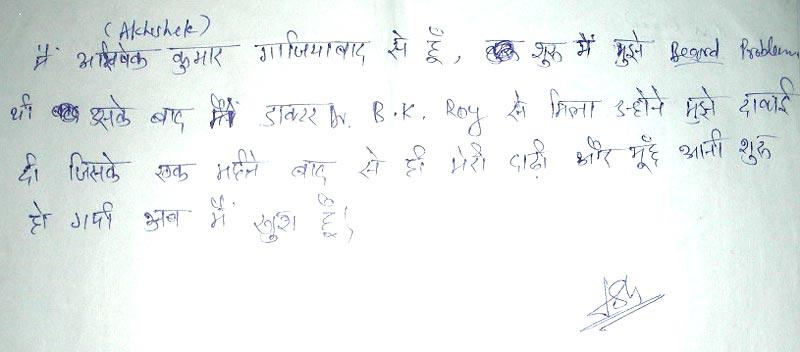 (Abhishek)
मैं अभिषेक कुमार गाजियाबाद से हूँ, शुरू में मुझे Beard Problem
थी इसके बाद मैं डाक्टर Dr. B.K. Roy से मिला उन्होने मुझे दवाई
दी जिसके एक महीने बाद से ही मेरी दाढ़ी और मूँछ आनी शुरू
हो गयी अब मैं खुश हूँ।